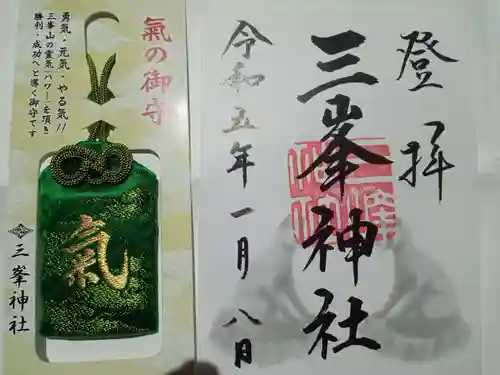 氣の御守
勇気・元気・やる気!!
三峯山の霊気「パワー」を頂き
勝利・成功へと導く御守です
氣
三峯神社
登拝
三峯神社
令和五年一月八日